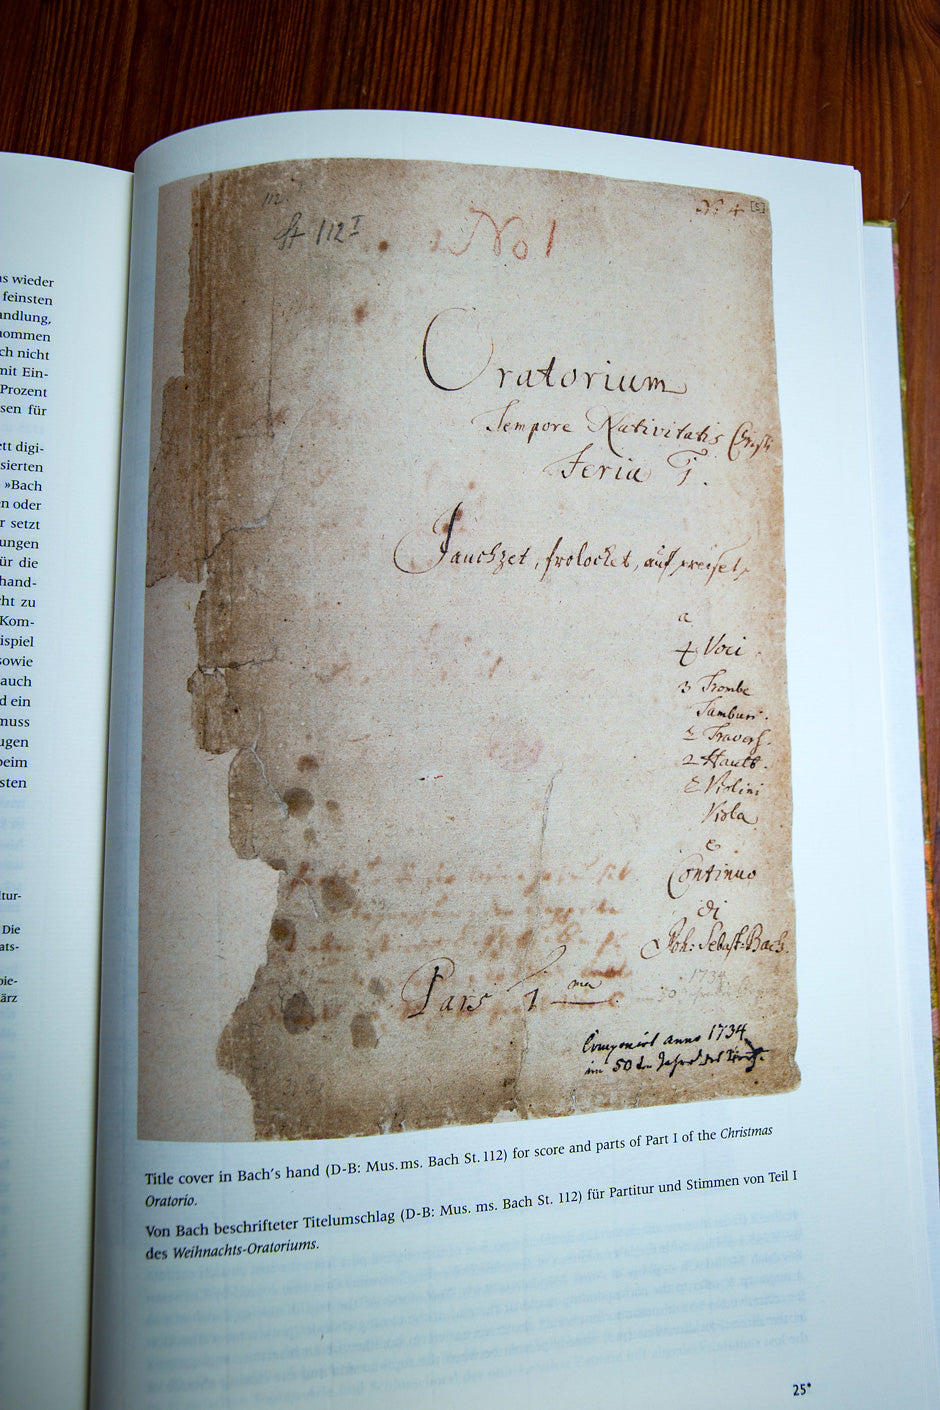 as wieder
feinsten
andlung,
nommen
ch nicht
mit Ein-
Prozent
sen für
ett digi-
sierten
»Bach
n oder
r setzt
ungen
ür die
hand-
cht zu
Kom-
ispiel
sowie
auch
d ein
muss
ugen
beim
sten
tur-
Die
ats-
pie-
ärz
112
St 112 I
No 1
No 4 [5]
Oratorium
Tempore Nativitatis Christi
Feria 1.
Jauchzet, frolocket, auf preiset,
a
4 Voci
3 Trombe
Tamburi.
2 Travers.
2 Hautb.
2 Violini
Viola
e
Continuo
di
Joh: Sebast: Bach.
1734
Pars 1 ma.
Componirt anno 1734
im 50 ten Jahre des
Title cover in Bach's hand (D-B: Mus. ms. Bach St. 112) for score and parts of Part I of the Christmas
Oratorio.
Von Bach beschrifteter Titelumschlag (D-B: Mus. ms. Bach St. 112) für Partitur und Stimmen von Teil I
des Weihnachts-Oratoriums.
25*